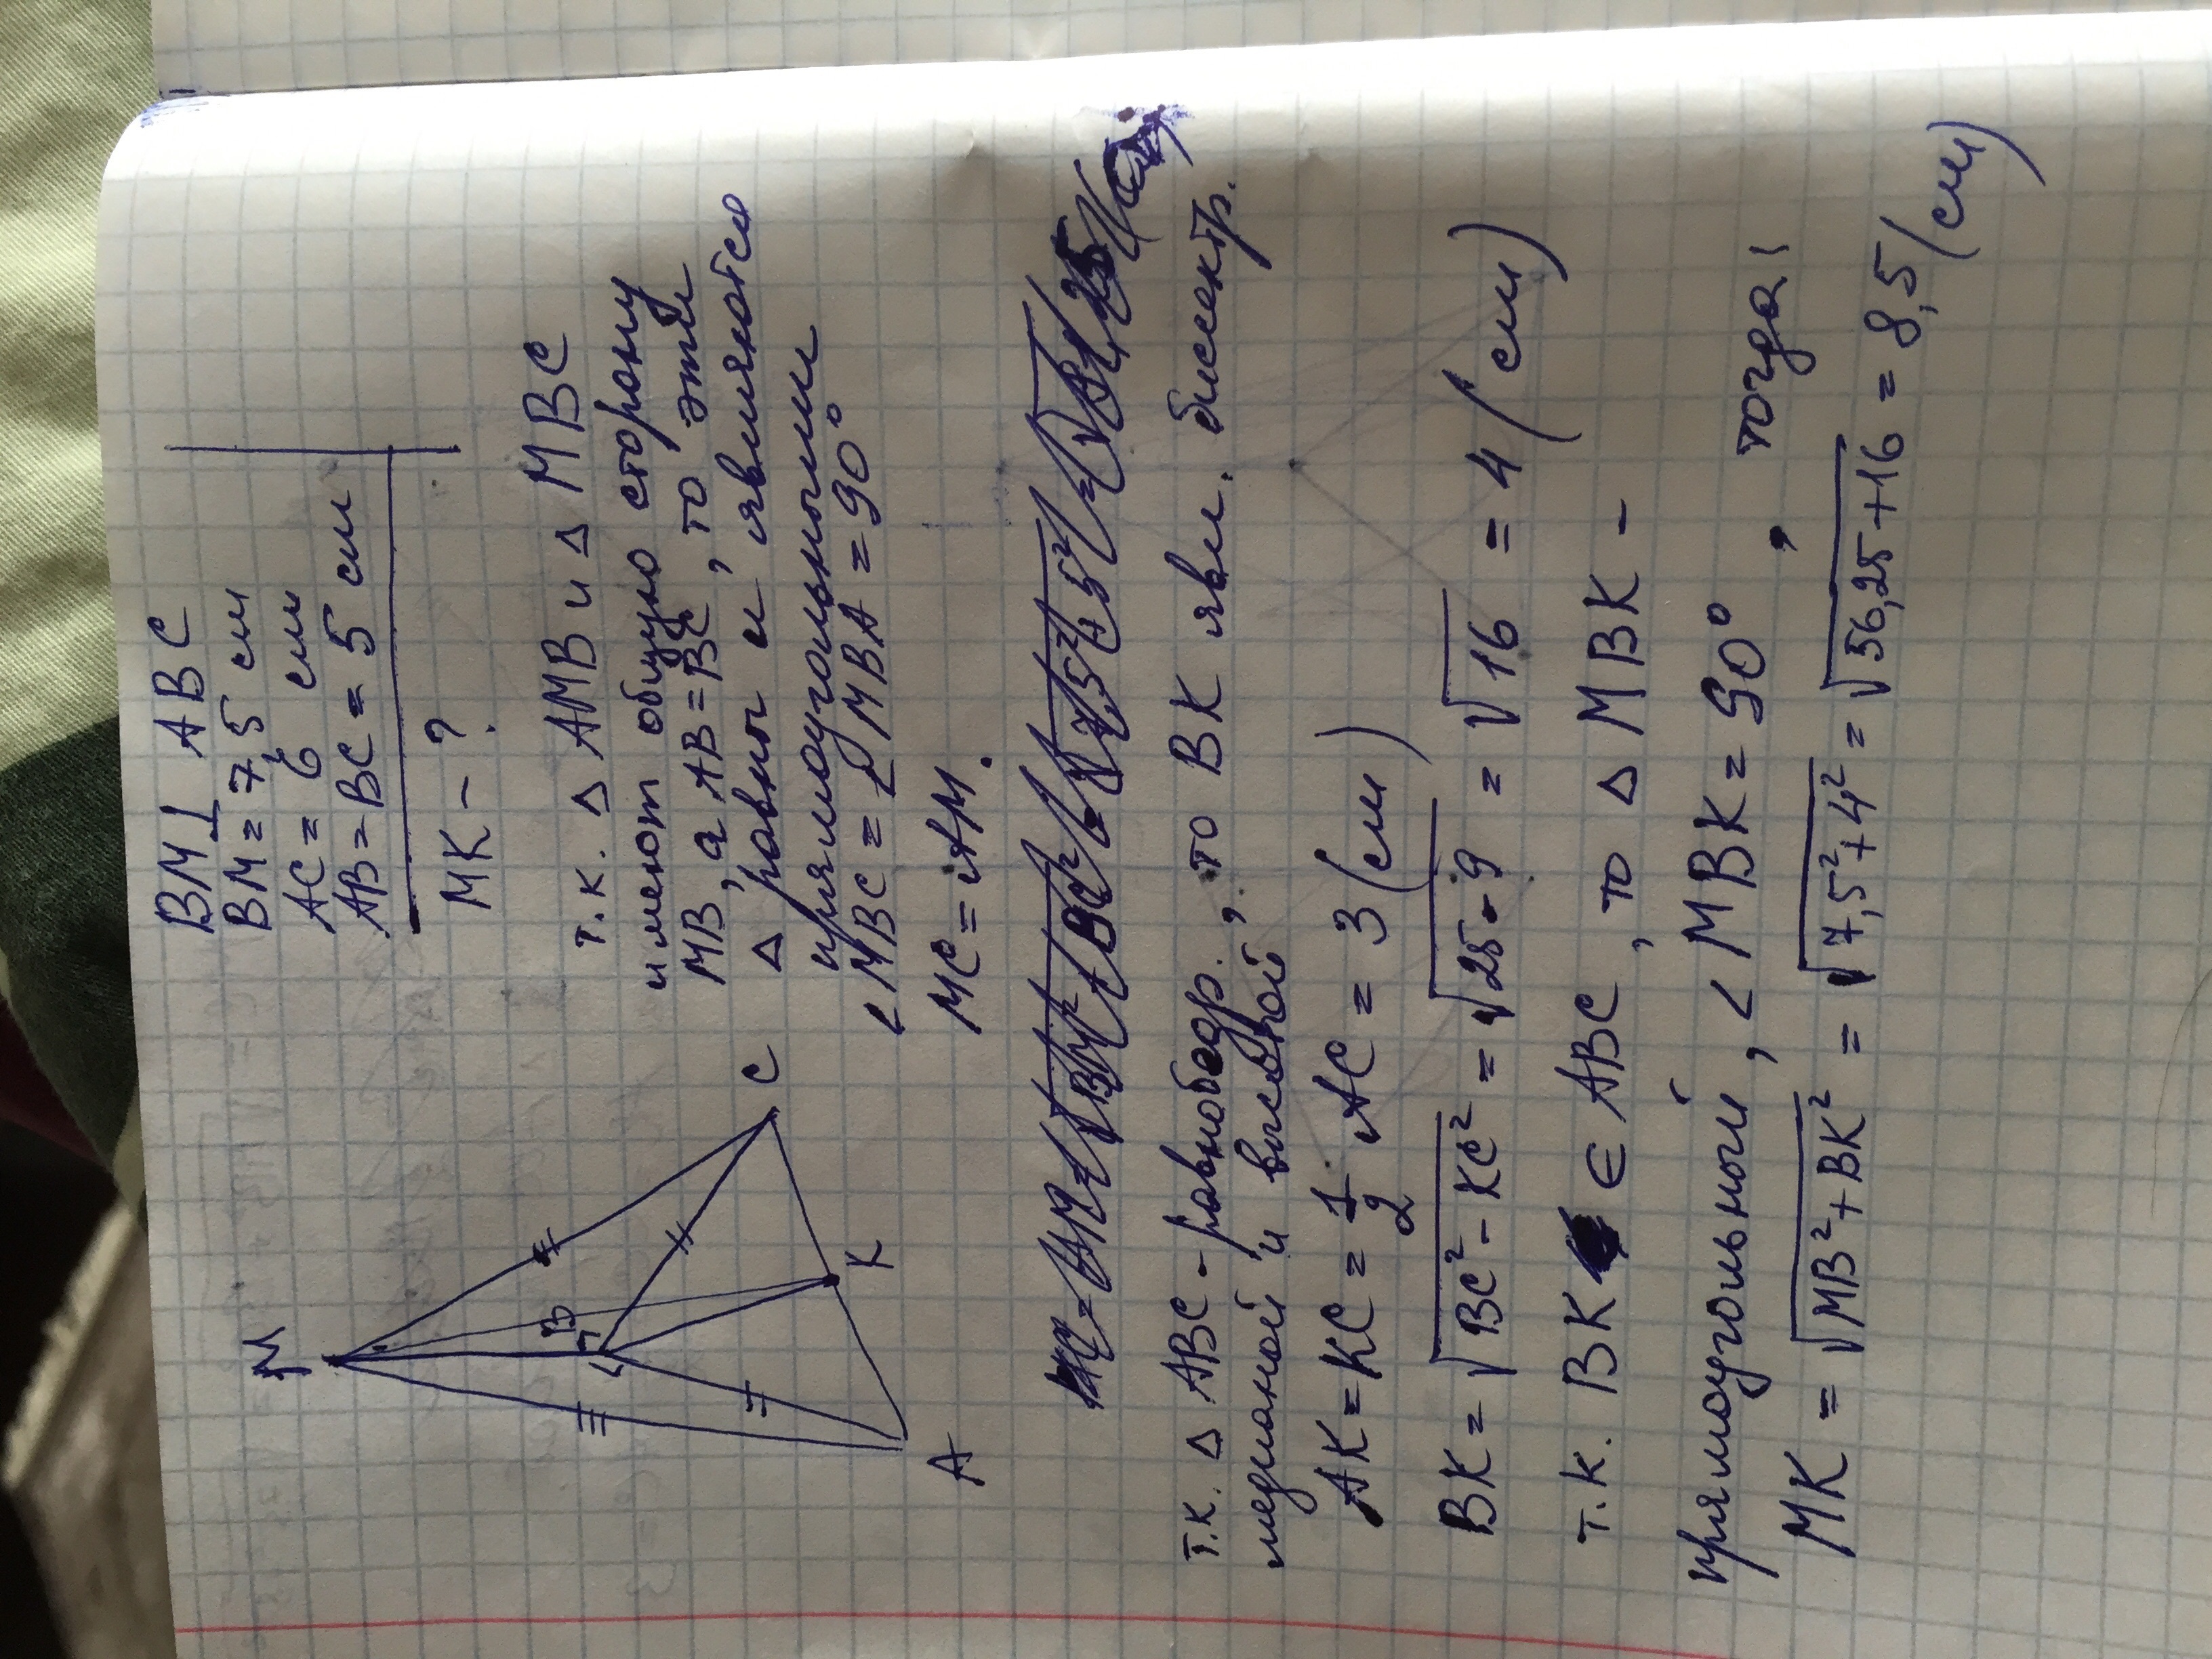 BM ⊥ ABC
BM = 7,5 см
AC = 6 см
AB = BC = 5 см
MK - ?
M
B
C
K
A
т.к. Δ AMB и Δ MBC
имеют общую сторону
MB, а AB = BC, то эти
Δ равны и являются
прямоугольными
∠ MBC = ∠ MBA = 90°
MC = AM.
т.к. Δ ABC - равнобедр., то BK явл. биссектр.
медианой и высотой
AK = KC = 1/2 AC = 3 (см)
BK = √BC² - KC² = √25 - 9 = √16 = 4 (см)
т.к. BK ∈ ABC, то Δ MBK -
прямоугольный, ∠ MBK = 90°, тогда
MK = √MB² + BK² = √7,5² + 4² = √56,25 + 16 = 8,5 (см)